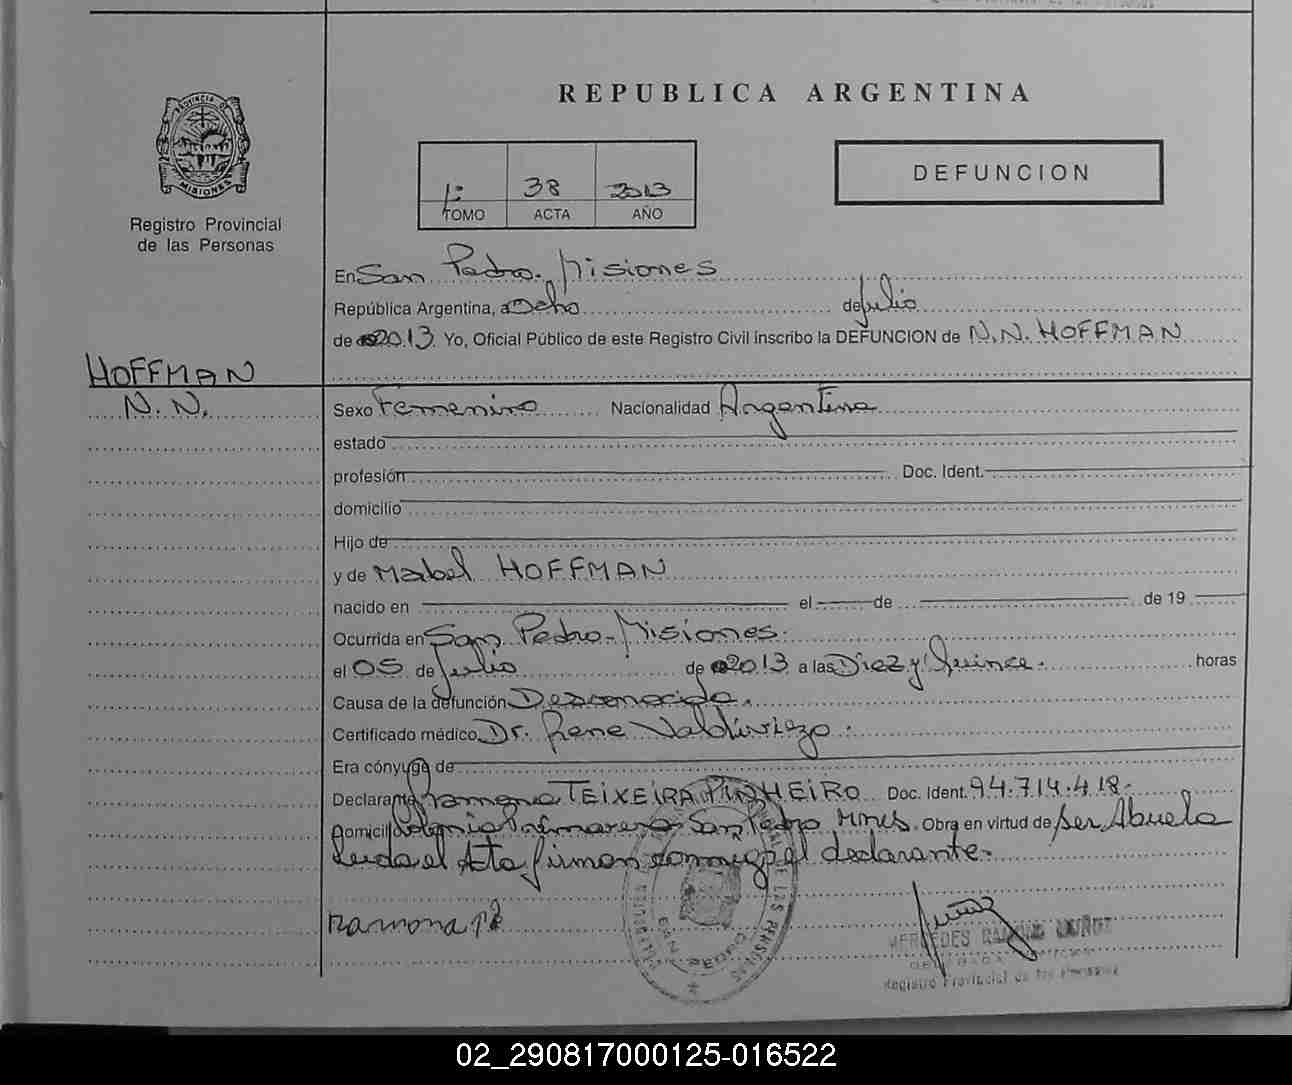 REPUBLICA ARGENTINA
PROVINCIA DE
MISIONES
Registro Provincial
de las Personas
1º 38 2013
TOMO ACTA AÑO
DEFUNCION
En San Pedro. Misiones
República Argentina, a Ocho de Julio
de 2013. Yo, Oficial Público de este Registro Civil inscribo la DEFUNCION de N.N. HOFFMAN
HOFFMAN
N. N.
Sexo Femenino Nacionalidad Argentina
estado
profesión Doc. Ident.
domicilio
Hijo de
y de Mabel HOFFMAN
nacido en el de de 19
Ocurrida en San Pedro-Misiones.
el 05 de Julio de 2013 a las Diez y Quince. horas
Causa de la defunción Desconocida.
Certificado médico Dr. Rene Valdiviezo.
Era cónyuge de
Declarante Ramona TEIXEIRA PINHEIRO Doc. Ident. 94.714.418.
domicilio Colonia Primavera San Pedro Mnes. Obra en virtud de ser Abuela
Leida el Acta firman conmigo el declarante.
Ramona
MERCEDES RAMONA MUÑOZ
DELEGADA
Registro Provincial de las Personas
DE LAS PERSONAS
SAN PEDRO
02_290817000125-016522